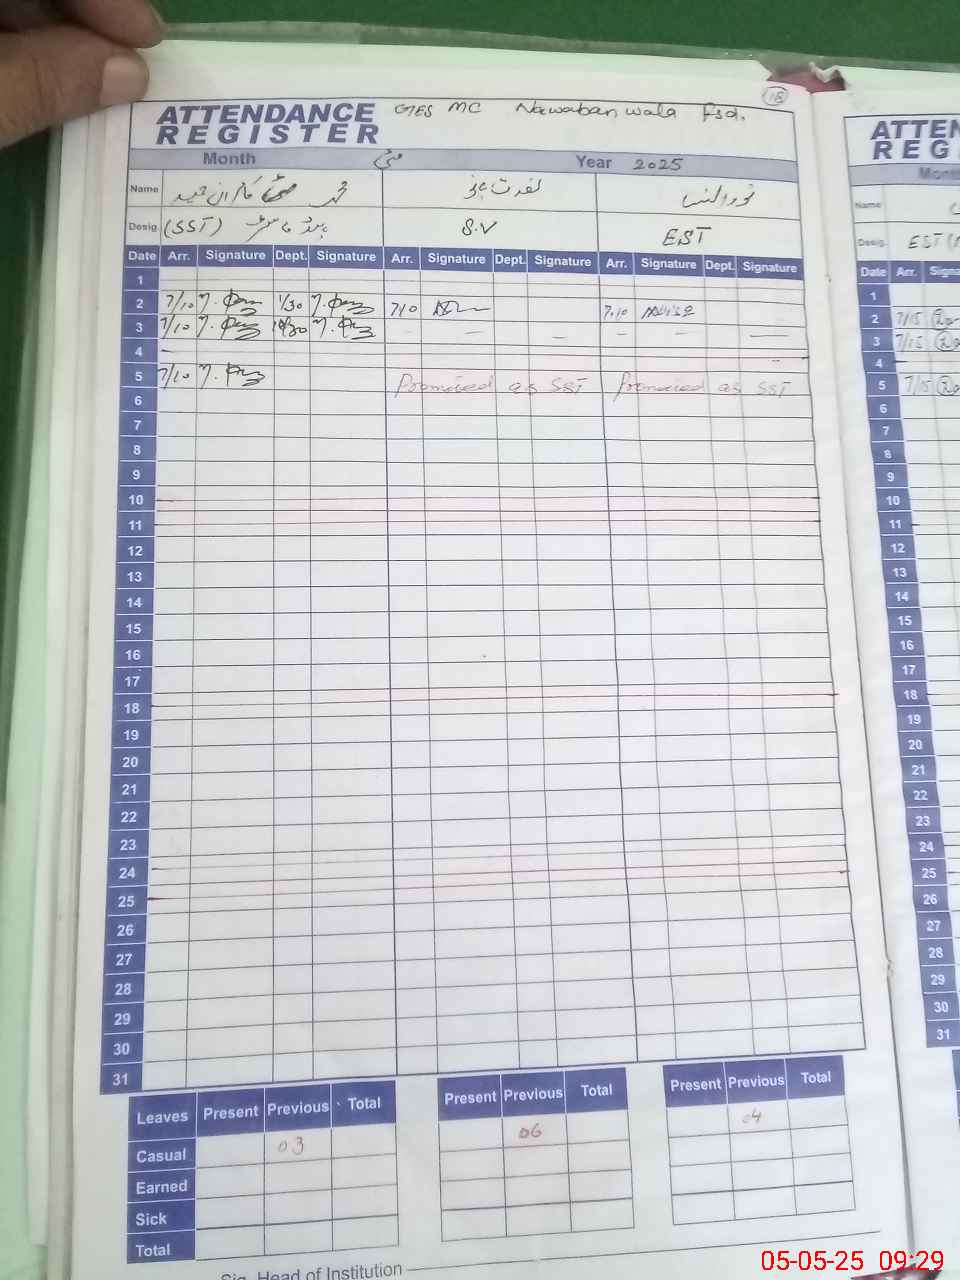 18
ATTENDANCE GES MC Nawaban wala Fsd.
REGISTER
Month مئی Year 2025
Name محمد کامران حمید نصرت بانو نورالنساء
Desig. (SST) ہیڈ ماسٹر S.V EST
Date Arr. Signature Dept. Signature Arr. Signature Dept. Signature Arr. Signature Dept. Signature
1
2 7/10 1/30 7/10 7.10
3 7/10 10/30 — — — — —
4
5 7/10 Promoted as SST Promoted as SST
6
7
8
9
10
11
12
13
14
15
16
17
18
19
20
21
22
23
24
25
26
27
28
29
30
31
Leaves Present Previous Total Present Previous Total Present Previous Total
Casual 03 06 04
Earned
Sick
Total
Sig. Head of Institution
ATTEN
REG
Month
Name
Desig. EST
Date Arr. Signa
1
2 7/15
3 7/15
4
5 7/15
6
7
8
9
10
11
12
13
14
15
16
17
18
19
20
21
22
23
24
25
26
27
28
29
30
31
05-05-25 09:29